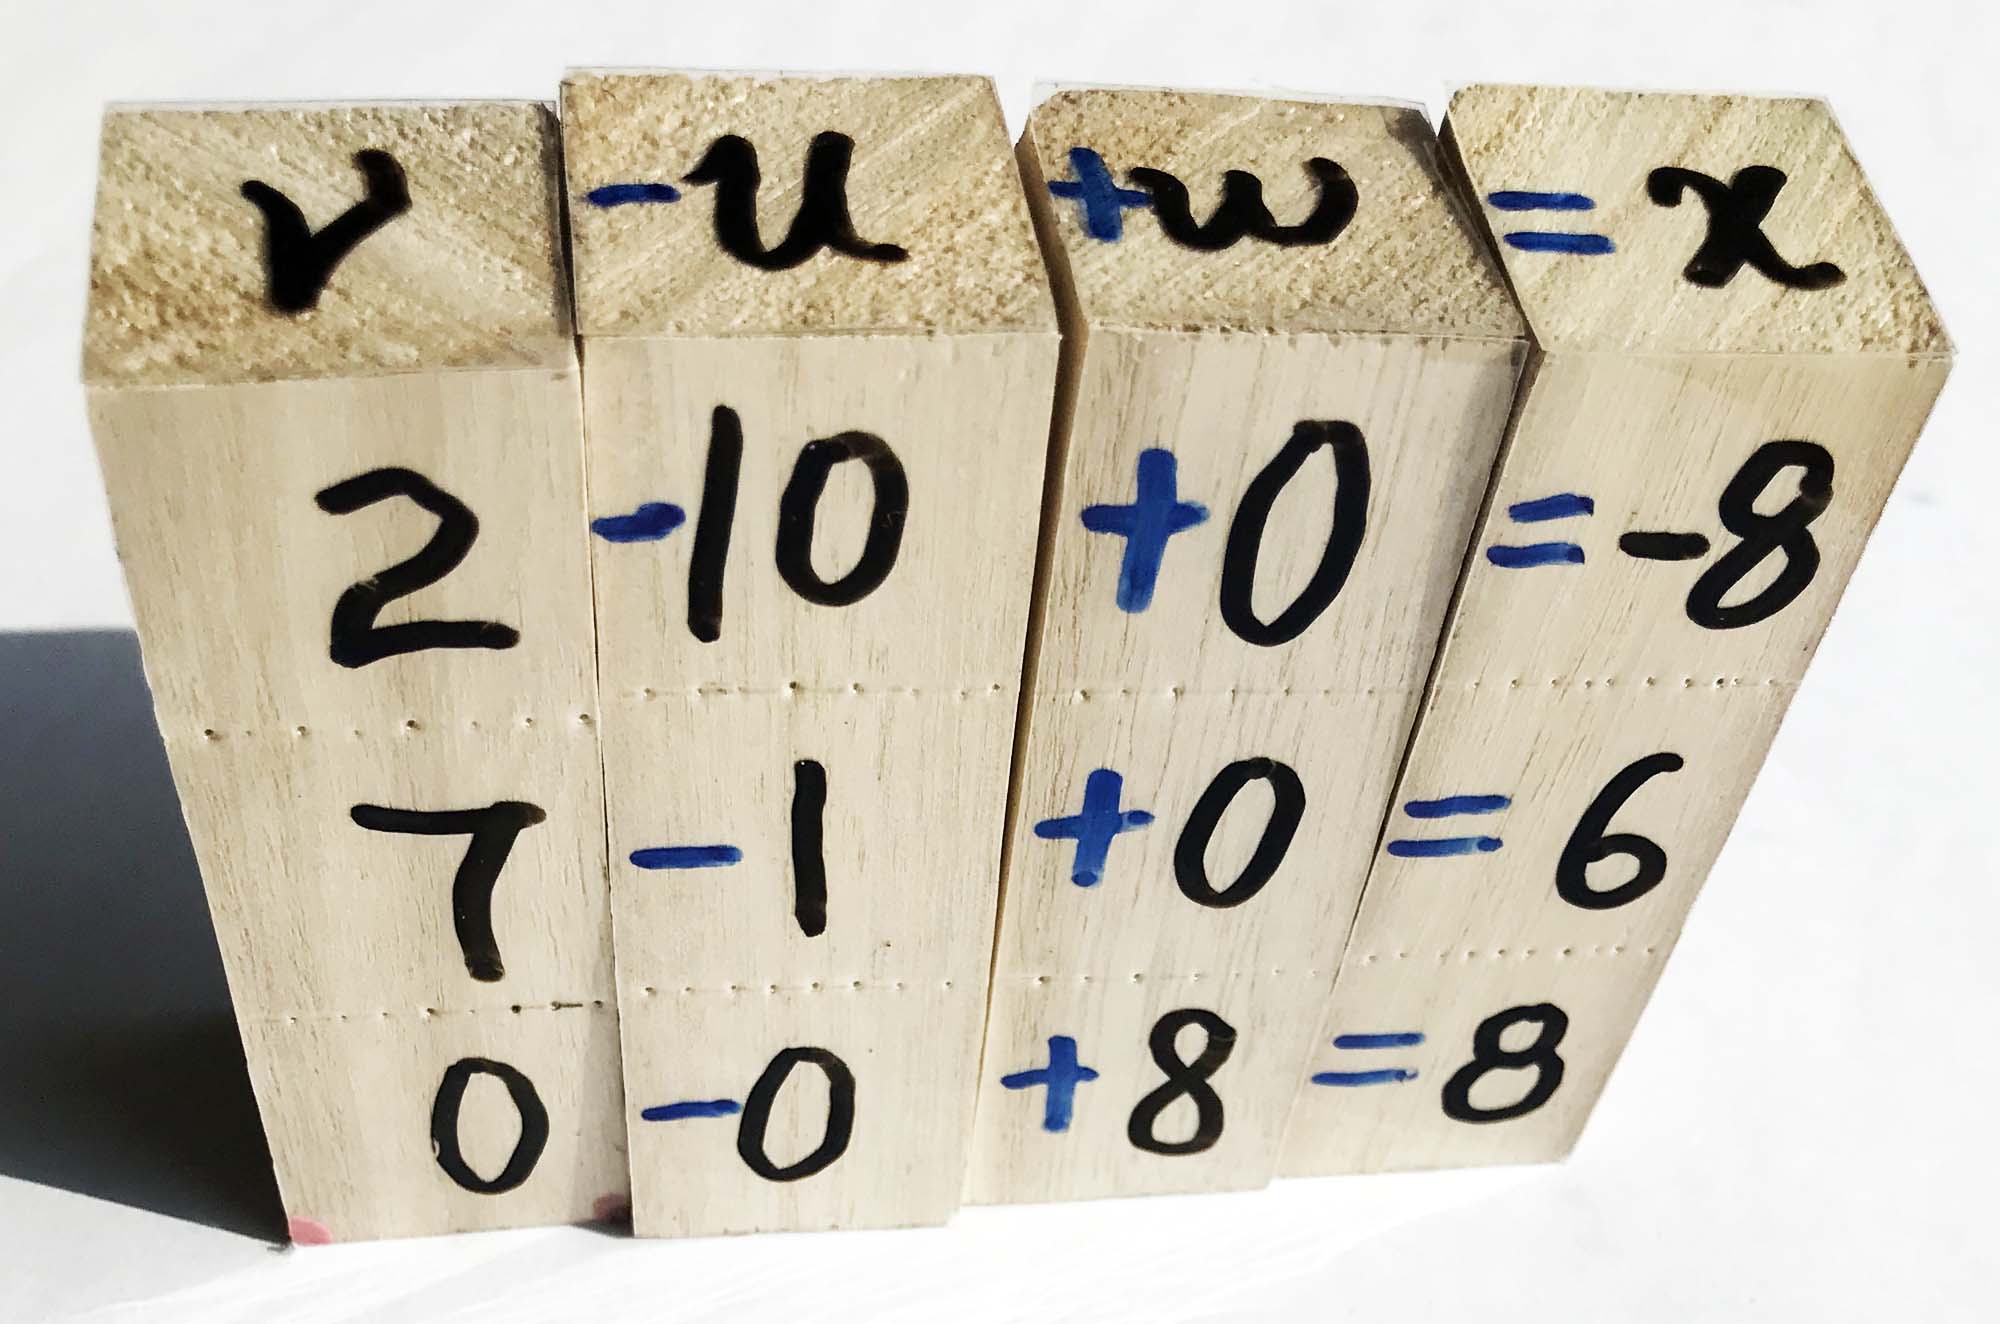 v -u +w = x
2 -10 +0 = -8
7 -1 +0 = 6
0 -0 +8 = 8